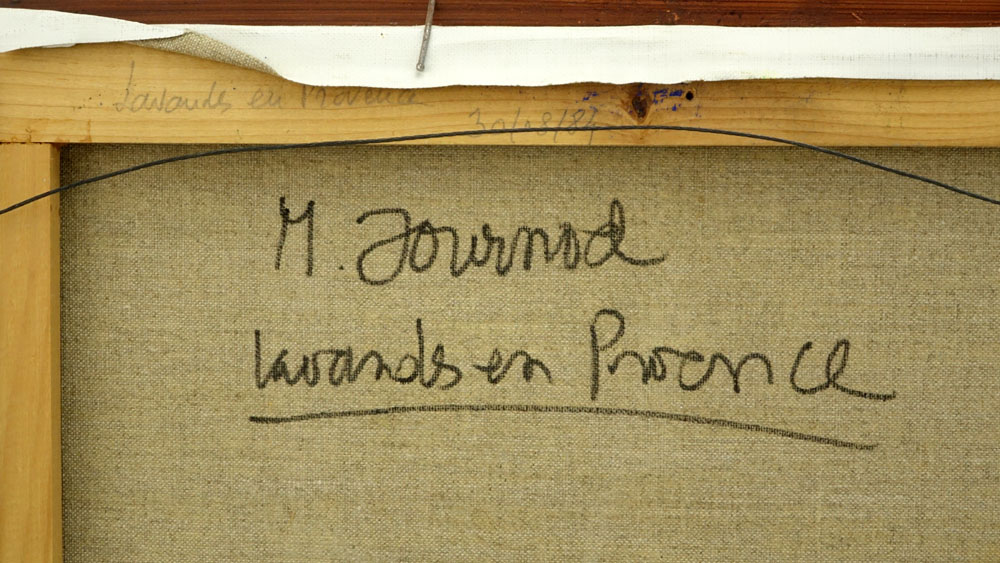 Lavands en Provence
M. Journod
lavands en Provence